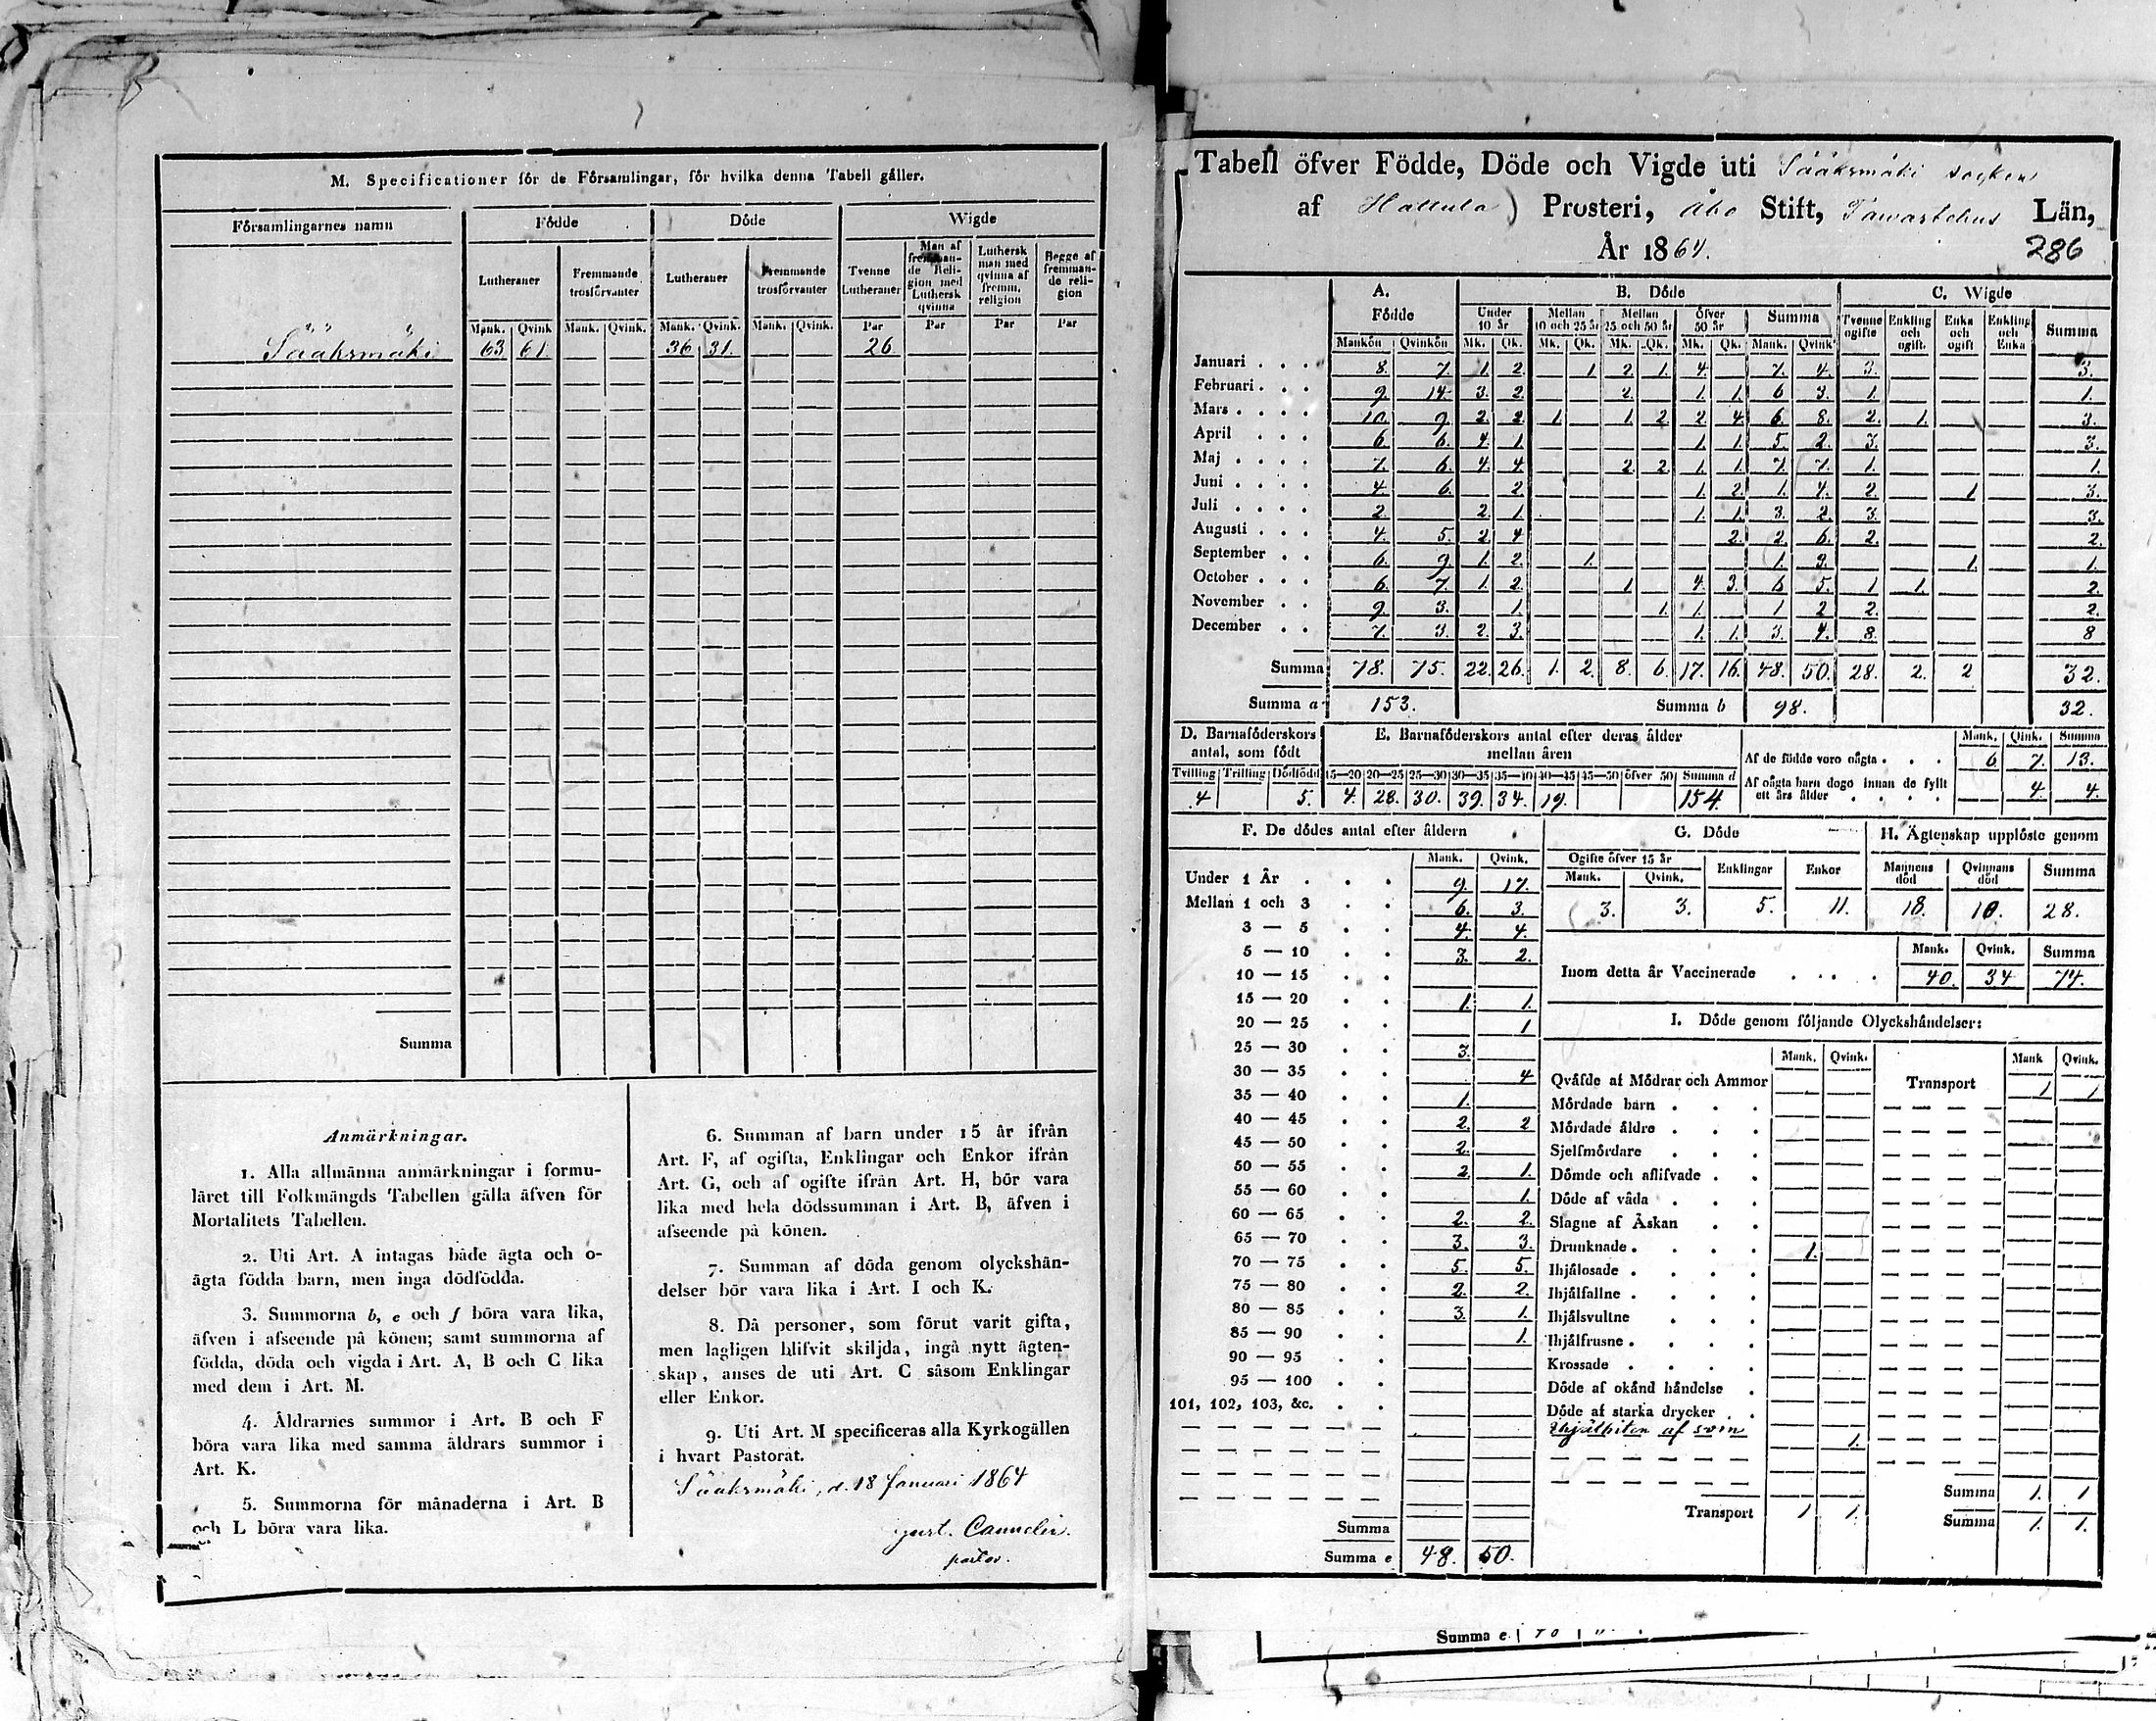 M. Specificationer för de Församlingar, för hvilka denna Tabell gäller.
Församlingarnes namn Födde Döde Wigde
Lutheraner Fremmande trosförvanter Lutheraner Fremmande trosförvanter Tvenne Lutheraner Man af fremmande Religion med Luthersk qvinna Luthersk man med qvinna af fremm. religion Begge af fremmande religion
Mank. Qvink Mank. Qvink. Mank. Qvink. Mank. Qvink. Par Par Par Par
Sääksmäki 63 61. 36 31. 26
Summa
Anmärkningar.
1. Alla allmänna anmärkningar i formu-
läret till Folkmängds Tabellen gälla äfven för
Mortalitets Tabellen.
2. Uti Art. A intagas både ägta och o-
ägta födda barn, men inga dödfödda.
3. Summorna b, e och f böra vara lika,
äfven i afseende på könen; samt summorna af
födda, döda och vigda i Art. A, B och C lika
med dem i Art. M.
4. Åldrarnes summor i Art. B och F
böra vara lika med samma åldrars summor i
Art. K.
5. Summorna för månaderna i Art. B
och L böra vara lika.
6. Summan af barn under 15 år ifrån
Art. F, af ogifta, Enklingar och Enkor ifrån
Art. G, och af ogifte ifrån Art. H, bör vara
lika med hela dödssumman i Art. B, äfven i
afseende på könen.
7. Summan af döda genom olyckshän-
delser bör vara lika i Art. I och K.
8. Då personer, som förut varit gifta,
men lagligen blifvit skiljda, ingå nytt ägten-
skap, anses de uti Art. C såsom Enklingar
eller Enkor.
9. Uti Art. M specificeras alla Kyrkogällen
i hvart Pastorat.
Sääksmäki, d. 18 Januari 1864
Gust. Cannelin.
pastor.
Tabell öfver Födde, Döde och Vigde uti Sääksmäki socken
af Hattula) Prosteri, Åbo Stift, Tawastehus Län,
År 1864. 286
A. Födde B. Döde C. Wigde
Under 10 år Mellan 10 och 25 år Mellan 25 och 50 år Öfver 50 år Summa Tvenne ogifte Enkling och ogift. Enka och ogift Enkling och Enka Summa
Mankön Qvinkön Mk. Qk. Mk. Qk. Mk. Qk. Mk. Qk. Mank. Qvink
Januari 8. 7. 1. 2. 1 2. 1. 4. 7. 4. 3. 3.
Februari 9. 14 3. 2. 2. 1. 1. 6 3. 1. 1.
Mars 10. 9. 2. 2. 1. 1. 2. 2 4. 6. 8. 2. 1. 3.
April 6. 6. 4. 1. 1. 1. 5. 2. 3. 3.
Maj 7. 6. 4. 4. 2. 2. 1. 1. 7. 7. 1. 1.
Juni 4. 6. 2. 1. 2. 1. 4. 2. 1 3.
Juli 2. 2. 1. 1. 1. 3. 2. 3. 3.
Augusti 4. 5. 2. 4 2. 2. 6. 2. 2.
September 6. 9. 1. 2. 1. 1. 3. 1. 1.
October 6. 7. 1. 2. 1 4. 3. 6 5. 1 1. 2.
November 9. 3. 1. 1. 1. 1 2 2. 2.
December 7. 3. 2. 3. 1. 1. 3. 4. 8. 8
Summa 78. 75. 22. 26. 1. 2. 8. 6. 17. 16. 48. 50. 28. 2. 2 32.
Summa a 153. Summa b 98. 32.
D. Barnaföderskors antal, som födt
Tvilling Trilling Dödfödd
4 5.
E. Barnaföderskors antal efter deras ålder
mellan åren
15—20 20—25 25—30 30—35 35—40 40—45 45—50 öfver 50 Summa d
4. 28. 30. 39. 34. 19. 154.
Mank. Qink. Summa
Af de födde voro oägta 6. 7. 13.
Af oägta barn dogo innan de fyllt
ett års ålder 4. 4.
F. De dödes antal efter åldern
Mank. Qvink.
Under 1 År 9. 17.
Mellan 1 och 3 6. 3.
3 — 5 4. 4.
5 — 10 3. 2.
10 — 15
15 — 20 1. 1.
20 — 25 1
25 — 30 3.
30 — 35 4
35 — 40 1.
40 — 45 2. 2
45 — 50 2.
50 — 55 2 1.
55 — 60 1.
60 — 65 2. 2.
65 — 70 3. 3.
70 — 75 5. 5.
75 — 80 2. 2.
80 — 85 3. 1.
85 — 90 1.
90 — 95
95 — 100
101, 102, 103, &c.
Summa
Summa e 48. 50.
G. Döde
Ogifte öfver 15 år Enklingar Enkor
Mank. Qvink.
3. 3. 5. 11.
H. Ägtenskap upplöste genom
Mannens död Qvinnans död Summa
18. 10. 28.
Mank. Qvink. Summa
Inom detta år Vaccinerade 40. 34 74.
I. Döde genom följande Olyckshändelser:
Mank. Qvink. Mank Qvink.
Qväfde af Mödrar och Ammor Transport 1 1
Mördade barn
Mördade äldre
Sjelfmördare
Dömde och aflifvade
Döde af våda
Slagne af Åskan
Drunknade 1.
Ihjälosade
Ihjälfallne
Ihjälsvultne
Ihjälfrusne
Krossade
Döde af okänd händelse
Döde af starka drycker
Ihjälbiten af svin 1.
Summa 1. 1
Transport 1 1. Summa 1. 1.
Summa e